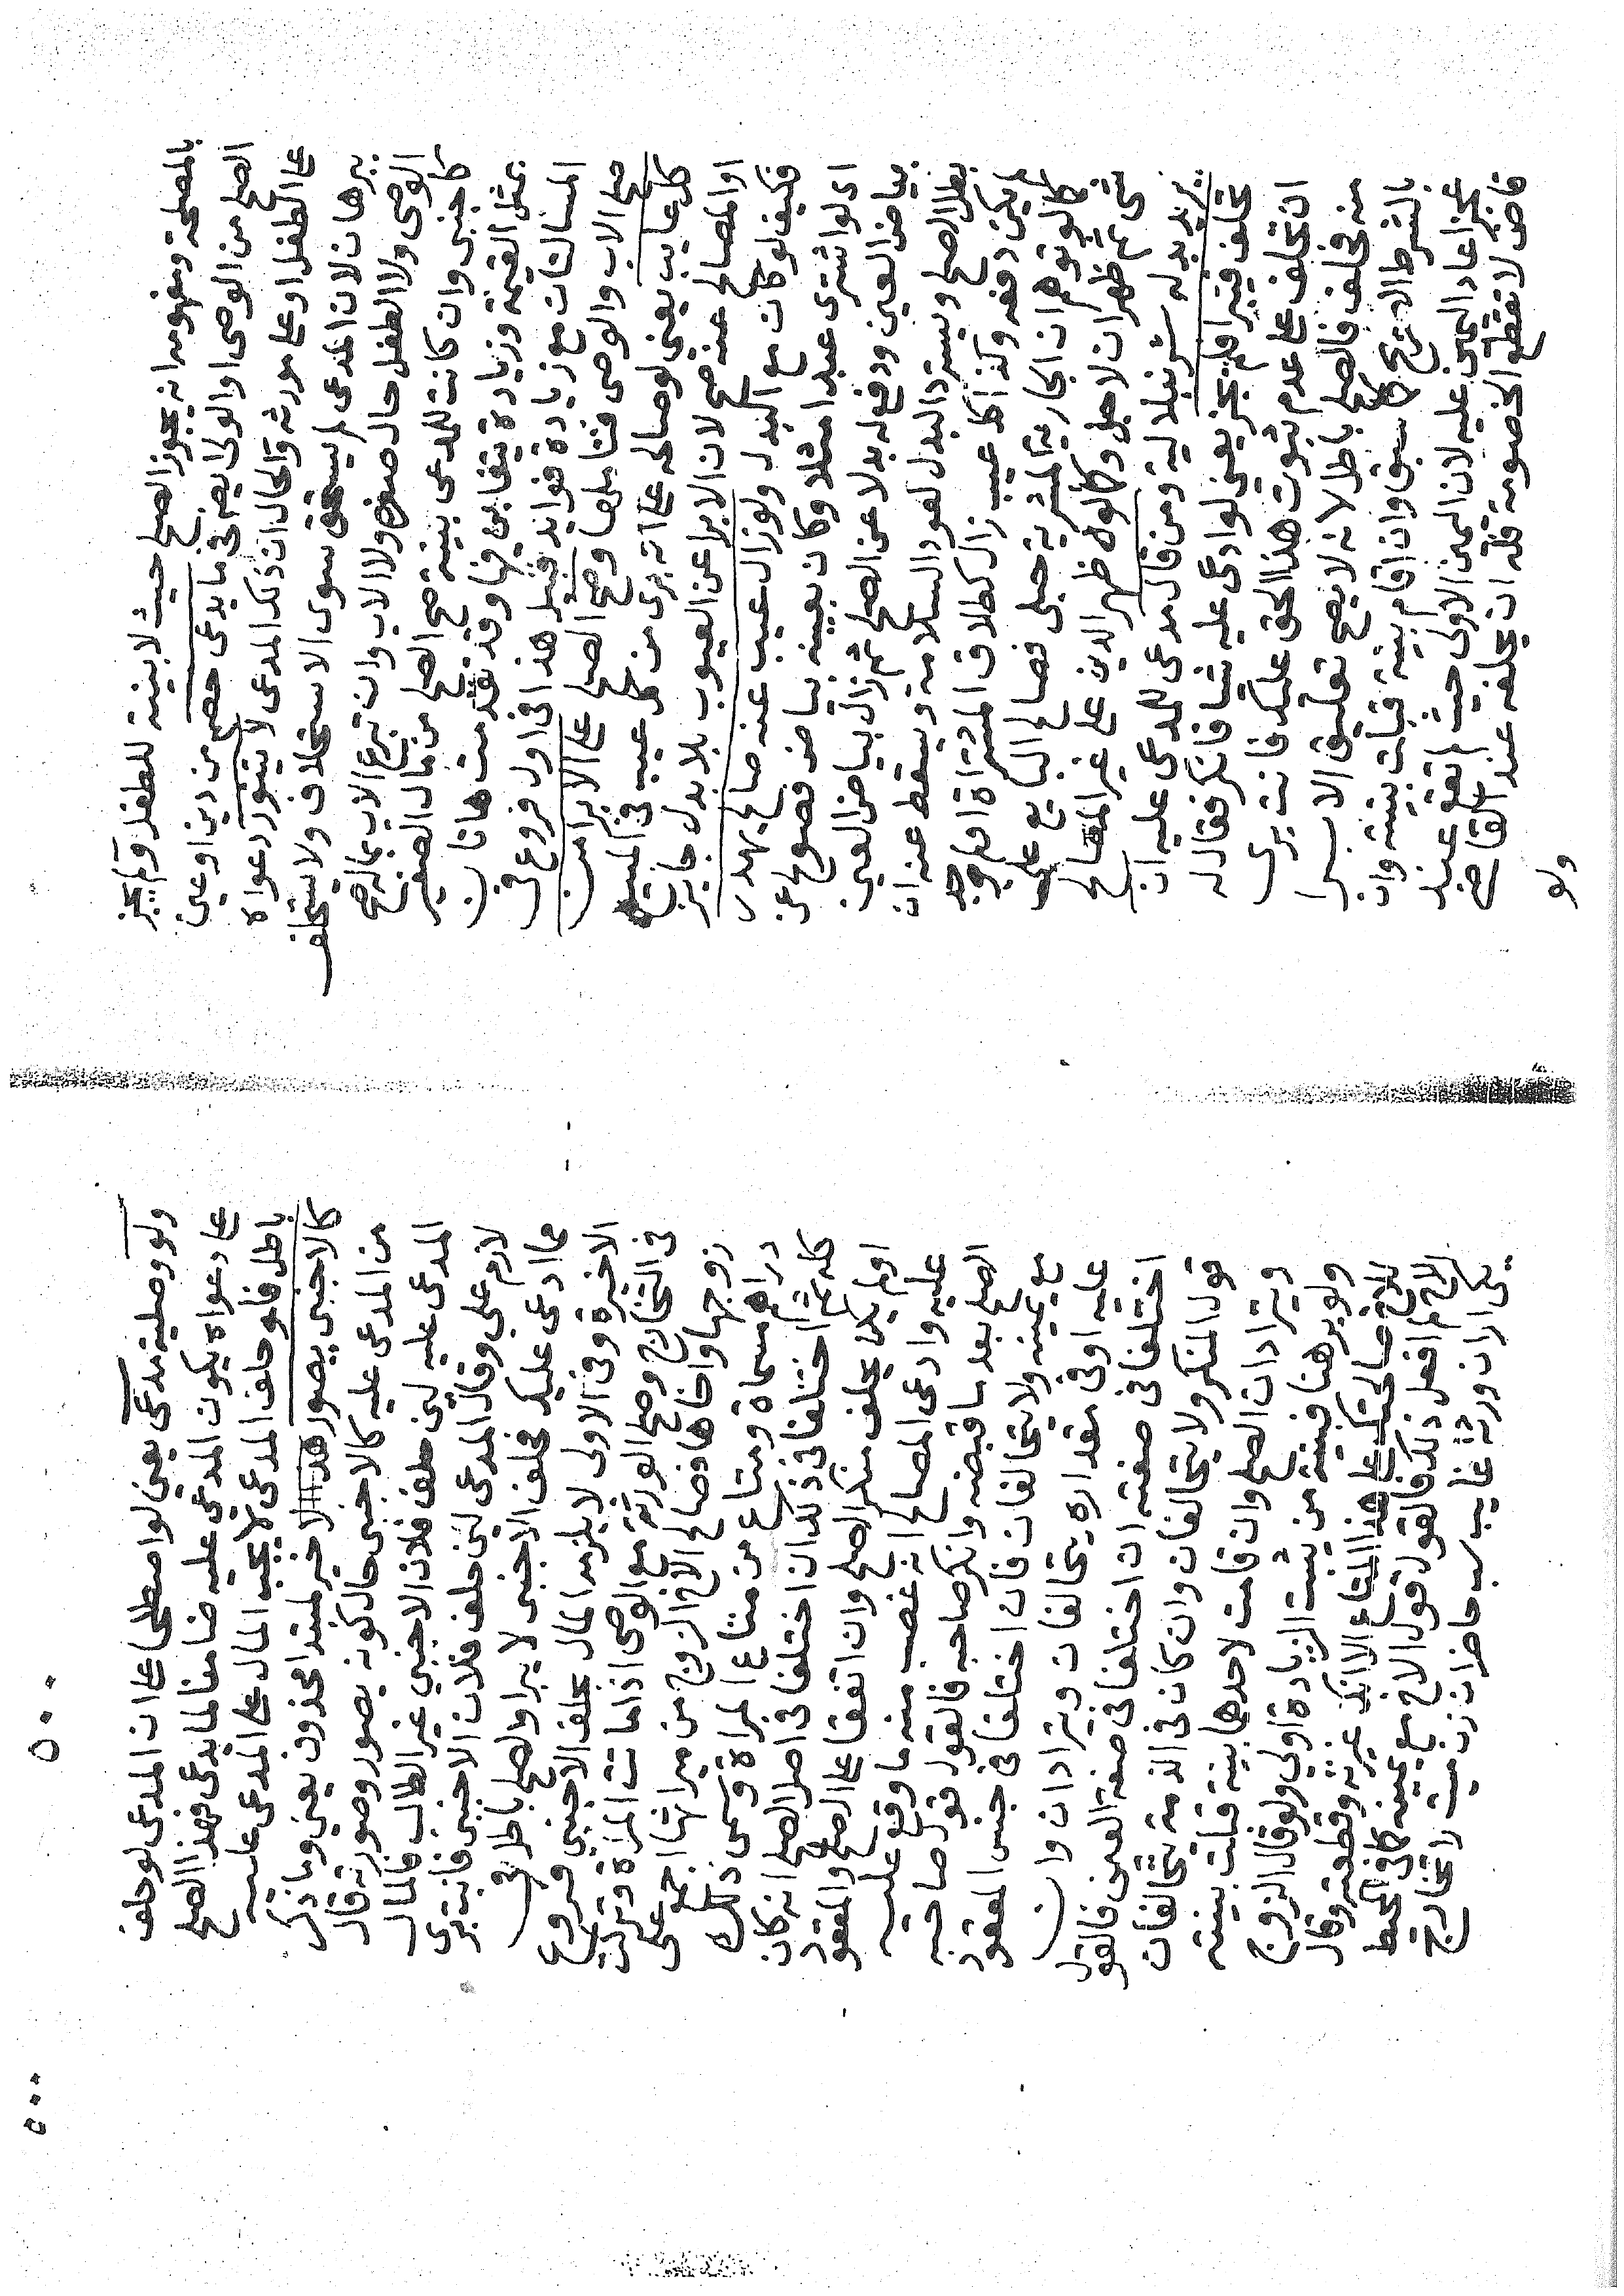 بالمصلحة ومفهومه انه يجوز الصلح حيث لا بينة للطفل ولم يجز
الصلح من الوصى او الولى ايضا فى ما يدعى خصم من دين او عين
على الطفل او على مورثه والحال ان ذكر المدعى لا يتنور دعواه
ببرهان لان المدعى لم يستحق سوى الاستحلاف ولا يستحلف
الوصى ولا الطفل حال صغره ولا الاب وان تبرع الاب بماله صح
كاجنبى وان كانت للمدعى بينة صح الصلح من مال الصغير
بمثل القيمة وزيادة يتغابن فيها وقد تقدمت هاتان
المسالتان مع زيادة فوايد قبيل هذا فى اول فروع فى
صلح الاب والوصى فتامل وصح الصلح على الابرا من
كل عايب يعنى لو صالحه على انه برى من كل عيب فى المبيع
او المصالح عنه صح لان الابرا عن العيوب بلا بدل جايز
فكيف لو كان مع البدل ولو زال عيب عنه صالح يهدر
اى لو اشترى عبدا مثلا وكان بعينه بياض فصولح عن
بياض العين ودفع له بدلا عن الصلح ثم زال بياض العين
بطل الصلح ويسترد البدل لعود السلامة ويسقط عنه ان
لم يكن دفعه وكذا كل عيب زال كطلاق المشتراة
كما لو توهم ان الجارية المشترية حبلى فصالح البايع على
شى ثم ظهر ان لا حبل وكما لو ظهر الدين على غير المصالح
يريد بدله شرنبلالية ومن قال مدعى للمدعى عليه ان
تحلف فتبرا فلم يجز يعنى لو ادعى عليه شيا فانكر فقال له
ان تحلف على عدم ثبوت هذا الحق عليك فانت برى
منه فحلف فالصلح باطل لانه لا يصح تعليق الابرا
بالشرط الصريح كما سبق وان اقام بينة قبلت بينته وان
عجز اعاد اليمين عليه لان اليمين الاولى حيث لم تقع عند
قاض لا تقطع الخصومة فله ان يحلفه عند القاضى
ولو
ولو وصلية مدعى يعنى لو اصطلحا على ان المدعى لو حلف
على دعواه يكون المدعى عليه ضامنا لما يدعى فهذا الصلح
باطل فلو حلف المدعى لا يجب المال على المدعى عليه
كالاجنبى يصور هذا الاخير لمبتدا محذوف يعنى وما ذكر
من المدعى عليه كالاجنبى حال كونه يصور وصورته قال
المدعى عليه لين حلف فلان الاجنبى غير الطالب فالمال
لازم على وقال المدعى لين حلف فلان الاجنبى فانت برى
مما ادعى عليك فحلف الاجنبى لا يبرا والصلح باطل فى
الاخيرة وفى الاولى لا يلزمه المال بحلف الاجنبى فروع
فى التخارج وصلح الورثة مع الوصى اذا ماتت المراة وتركت
زوجها واخاها فصالح الاخ الزوج من ميراثها اجمع على
دراهم مسماة ومتاع من متاع المراة وسمى ذلك
كله ثم اختلفا فى ذلك ان اختلفا فى اصل الصلح انه كان
او لم يكن يحلف منكر الصلح وان اتفقا على الصلح والمعقود
عليه وادعى المصالح انه غصب منه ما وقع عليه
الصلح بعد ما قبضه وانكر صاحبه فالقول قول صاحبه
مع يمينه ولا يتحالفان فان اختلفا فى جنس المعقود
عليه او فى مقداره يتحالفان ويترادان وان
اختلفا فى صفته ان اختلفا فى صفة العين فالقول
قول المنكر ولا يتحالفان وان كان فى الذمة يتحالفان
ويترادان الصلح وان قامت لاحدهما بينة قبلت بينته
ولو برهنا فبينة من يثبت الزيادة اولى ولو قال الزوج
للاخ صالحتك على هذا المتاع الا انك غيرته وقطعته وقال
الاخ لم افعل ذلك فالقول قول الاخ مع يمينه كذا فى المحيط
بكرا ان ورثة غايب حاضر ان زن ميت را تخارج